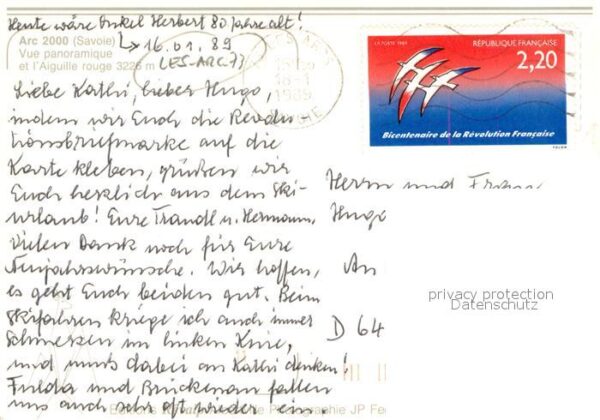 Heute wäre Onkel Herbert 80 Jahre alt!
Arc 2000 (Savoie)
↳ 16.01.89
Vue panoramique
et l'Aiguille rouge 3226 m
(LES-ARC-73)
1989
RÉPUBLIQUE FRANÇAISE
2,20
Bicentenaire de la Révolution Française
Liebe Kathi, lieber Hugo,
indem wir Euch die Revolu-
tionsbriefmarke auf die
Karte kleben, grüßen wir
Euch herzlich aus dem Ski-
urlaub! Eure Traudl u. Hermann.
Vielen Dank noch für Eure
Neujahrswünsche. Wir hoffen,
es geht Euch beiden gut. Beim
Skifahren kriege ich auch immer
Schmerzen im linken Knie,
und muß dabei an Kathi denken!
Fulda und Brückenau fallen
uns auch sehr oft wieder ein.
Herrn und Frau
Hugo
An
D 64
privacy protection
Datenschutz